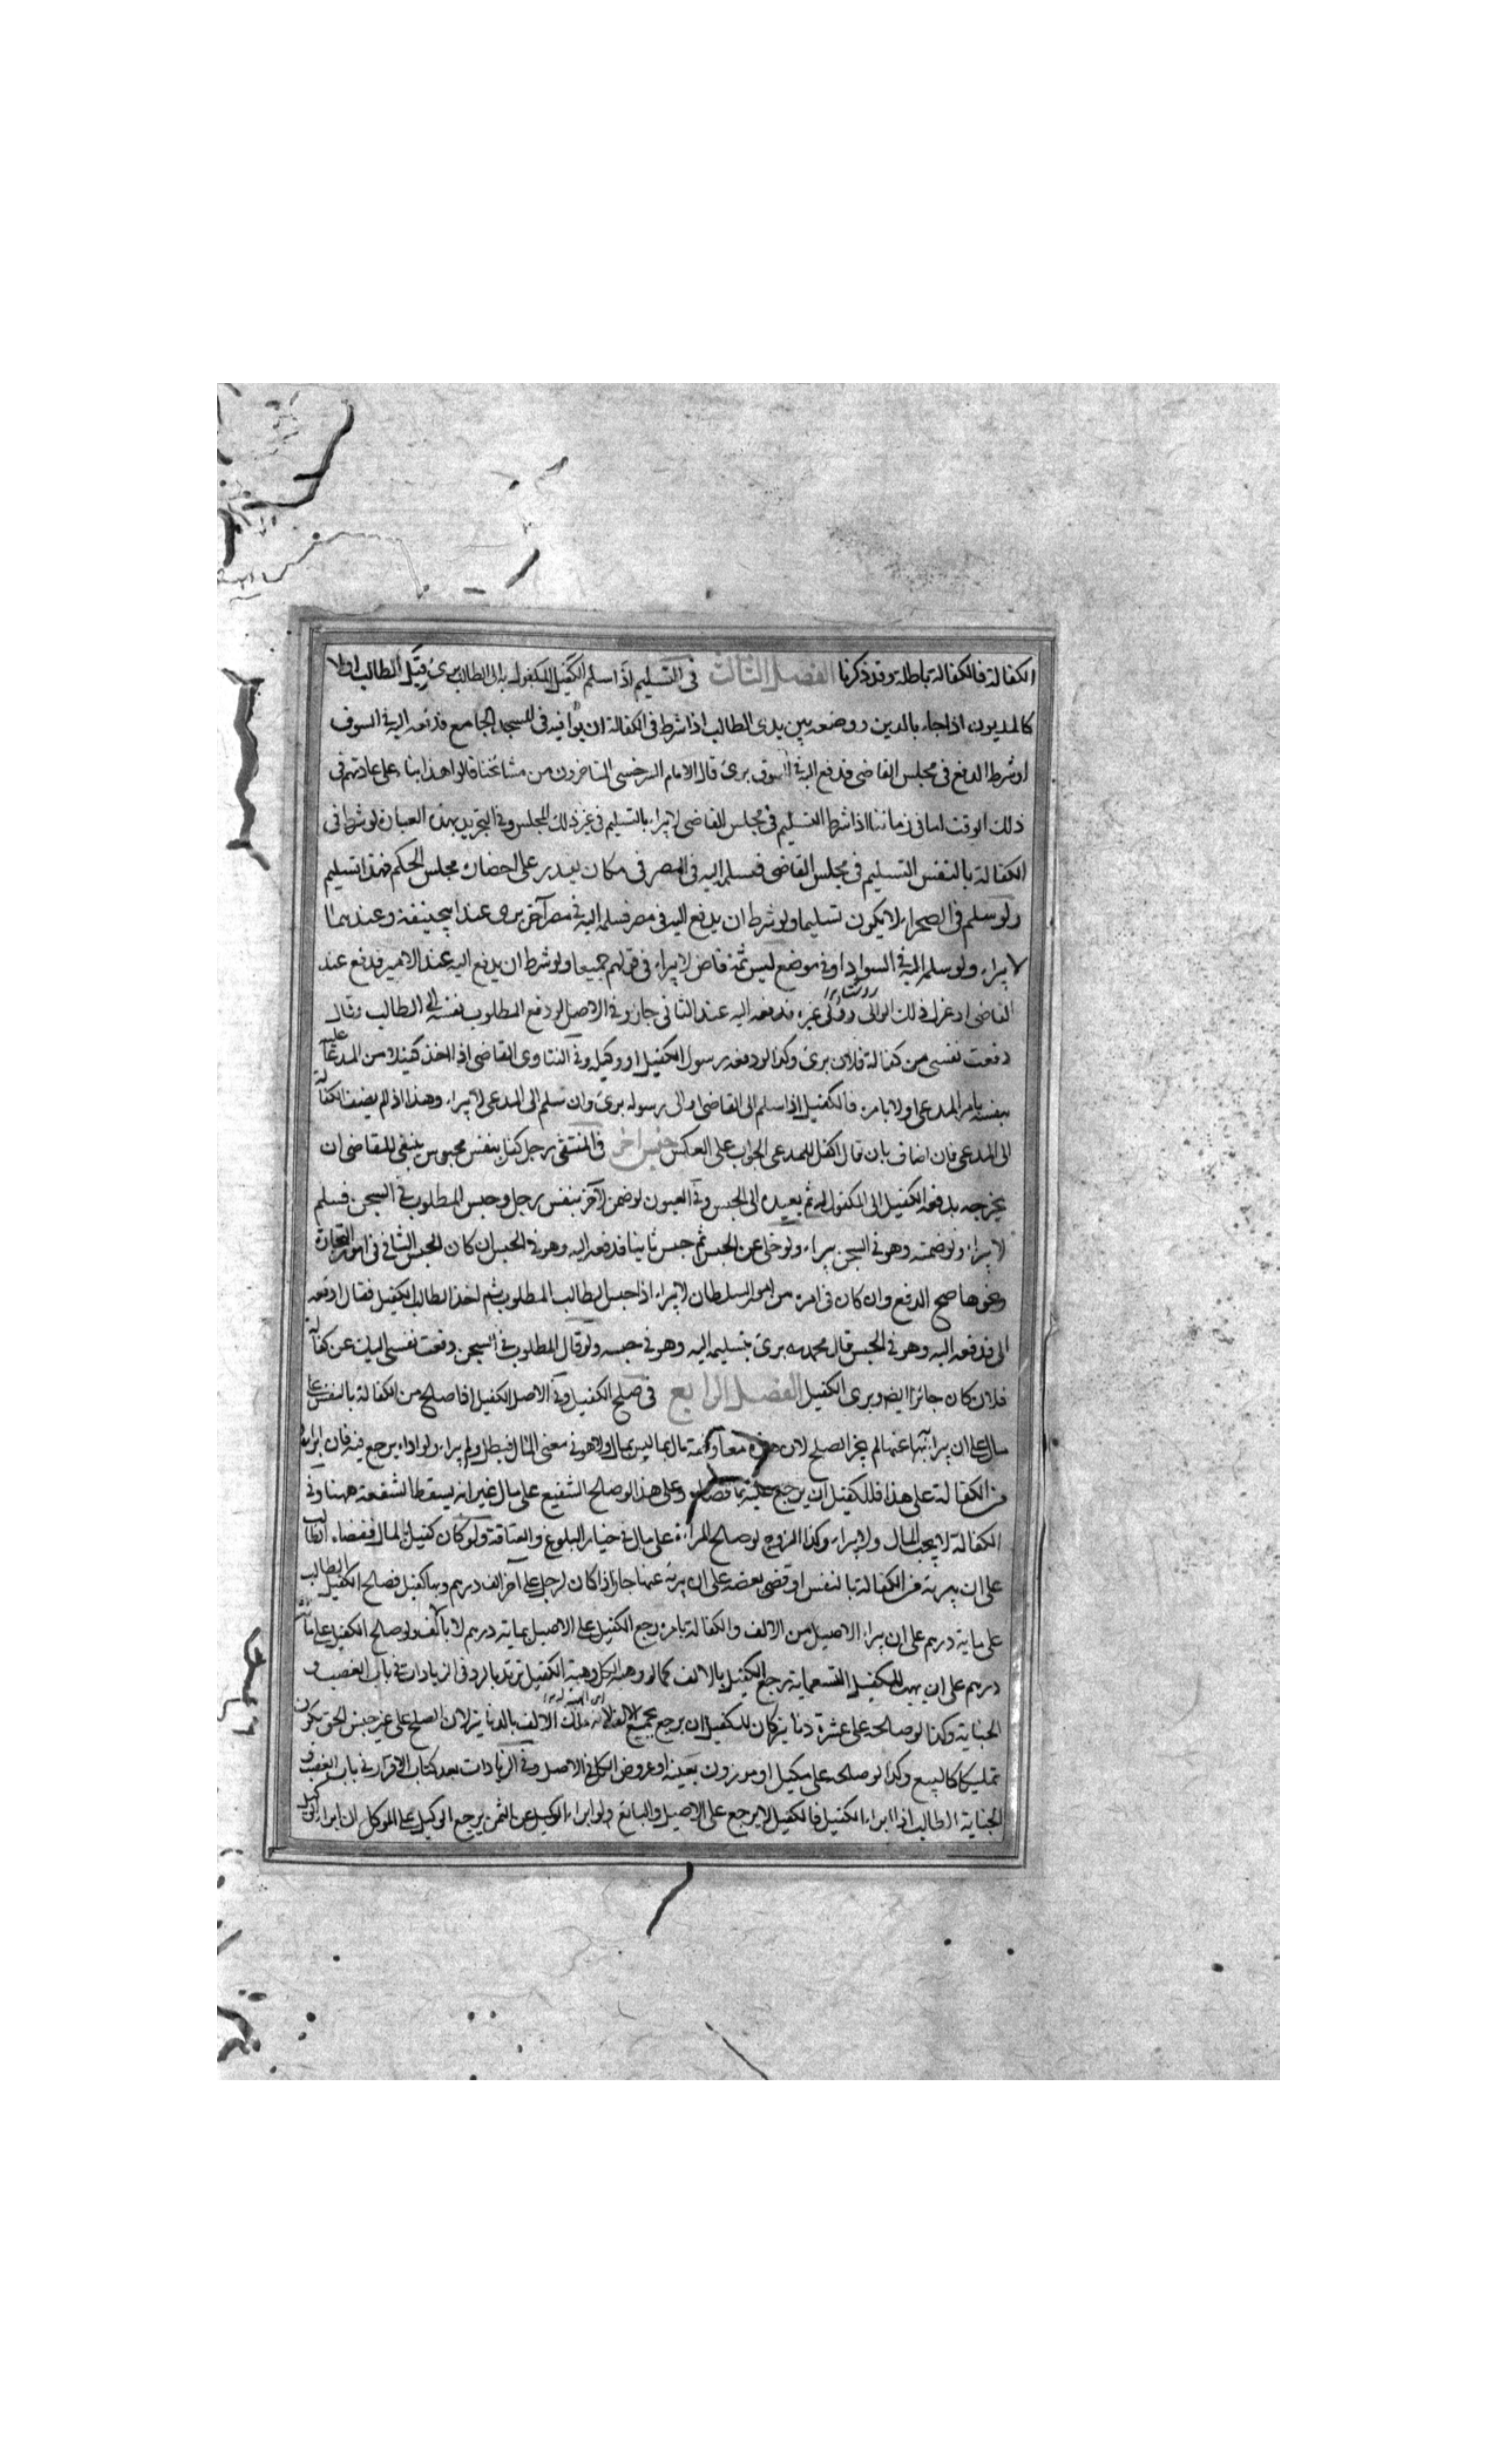 الكفالة فالكفالة باطلة وقد ذكرنا الفصل الثالث في التسليم اذا سلم الكفيل المكفول به الى الطالب برئ قبل الطالب اولا
كالمديون اذا جاء بالدين ووضعه بين يدى الطالب اذا شرط في الكفالة ان يوافيه في المسجد الجامع فدفعه اليه في السوق
او شرط الدفع في مجلس القاضي فدفع اليه في السوق برئ قال الامام السرخسي المتاخرون من مشائخنا قالوا هذا بناء على عادتهم في
ذلك الوقت اما في زماننا اذا شرط التسليم في مجلس القاضي لا يبراء بالتسليم في غير ذلك المجلس وفي التجريد بهذه العبارة لو شرط في
الكفالة بالنفس التسليم في مجلس القاضي فسلم اليه في المصر في مكان يقدر على احضاره مجلس الحكم فهذا تسليم
ولو سلم في الصحراء لا يكون تسليما ولو شرط ان يدفع اليه في مصر فسلمه اليه في مصر آخر برئ عند ابيحنيفة وعندهما
لا يبراء ولو سلم اليه في السواد او في موضع ليس ثمة قاض لا يبراء في قولهم جميعا ولو شرط ان يدفع اليه عند الامير فدفع عند
القاضي او عزل ذلك الوالى وولى غيره فدفعه اليه عند الثاني جاز وفي الاصل لو دفع المطلوب نفسه الى الطالب وقال
دفعت نفسي من كفالة فلان برئ وكذا لو دفعه رسول الكفيل او وكيله وفي الفتاوى القاضي اذا اخذ كفيلا من المدعا عليه
بنفسه بامر المدعي اولا بامره فالكفيل اذا سلم الى القاضي او الى رسوله برئ وان سلم الى المدعي لا يبراء وهذا اذا لم يضف الكفالة
الى المدعي فان اضاف بان قال اكفل للمدعي الجواب على العكس جنس آخر في المنتقى رجل كفل بنفس محبوس ينبغي للقاضي ان
يخرجه يدفعه الكفيل الى المكفول له ثم يعيده الى الحبس وفي العيون لو ضمن لآخر بنفس رجل وحبس المطلوب في السجن فسلم
لا يبراء ولو ضمنه وهو في السجن يبراء ولو خلى عن الحبس ثم حبس ثانيا فدفعه اليه وهو في الحبس ان كان الحبس الثاني في امور التجارة
ونحوها صح الدفع وان كان في امره من امور السلطان لا يبراء اذا حبس الطالب المطلوب ثم اخذ الطالب الكفيل فقال ادفعه
الى فدفعه اليه وهو في الحبس قال محمد برئ بتسليمه اليه وهو في حبسه ولو قال المطلوب في السجن دفعت نفسي اليك عن كفالة
فلان كان جائزا ايضا وبرئ الكفيل الفصل الرابع في صلح الكفيل وفي الاصل الكفيل اذا صالح من الكفالة بالنفس على
مال على ان يبرائه عنها لم يجز الصلح لان هذه معاوضة مال بما ليس بمال ولا هو في معنى المال فبطل ولم يبراء ولو اداه يرجع فيه فان ابراه
من الكفالة على هذا فللكفيل ان يرجع عليه بما قضاه وعلى هذا لو صالح الشفيع على مال غير انه يسقط الشفعة ههنا وفي
الكفالة لا يجب المال ولا يبراء وكذا الزوج لو صالح المراءة على مال في خيار البلوغ والعتاقة ولو كان كفيل المال فقضاه الطالب
على ان يبرئه من الكفالة بالنفس او قضى بعضه على ان يبرئه عنها جاز اذا كان لرجل على آخر الف درهم وبها كفيل فصالح الكفيل الطالب
على مائة درهم على ان يبراء الاصيل من الالف والكفالة بامره رجع الكفيل على الاصيل بمائة درهم لا بالف ولو صالح الكفيل على مائة
درهم على ان يهب للكفيل التسعمائة يرجع الكفيل بالالف كما لو وهبه الكل وفي الزيادات في باب الغصب و
الجناية وكذا لو صالحه على عشرة دنانير كان للكفيل ان يرجع بجميع الالف لانه ملك الالف بالدنانير لان الصلح على غير جنس الحق يكون
تمليكا كالبيع وكذا لو صالحه على مكيل او موزون بعينه او عروض الكل في الاصل وفي الزيادات بعد كتاب الاقرار في باب الغصب و
الجناية الطالب اذا ابراء الكفيل فالكفيل لا يرجع على الاصيل والبائع لو ابراء الوكيل عن الثمن يرجع الوكيل على الموكل ان ابراء الوكيل